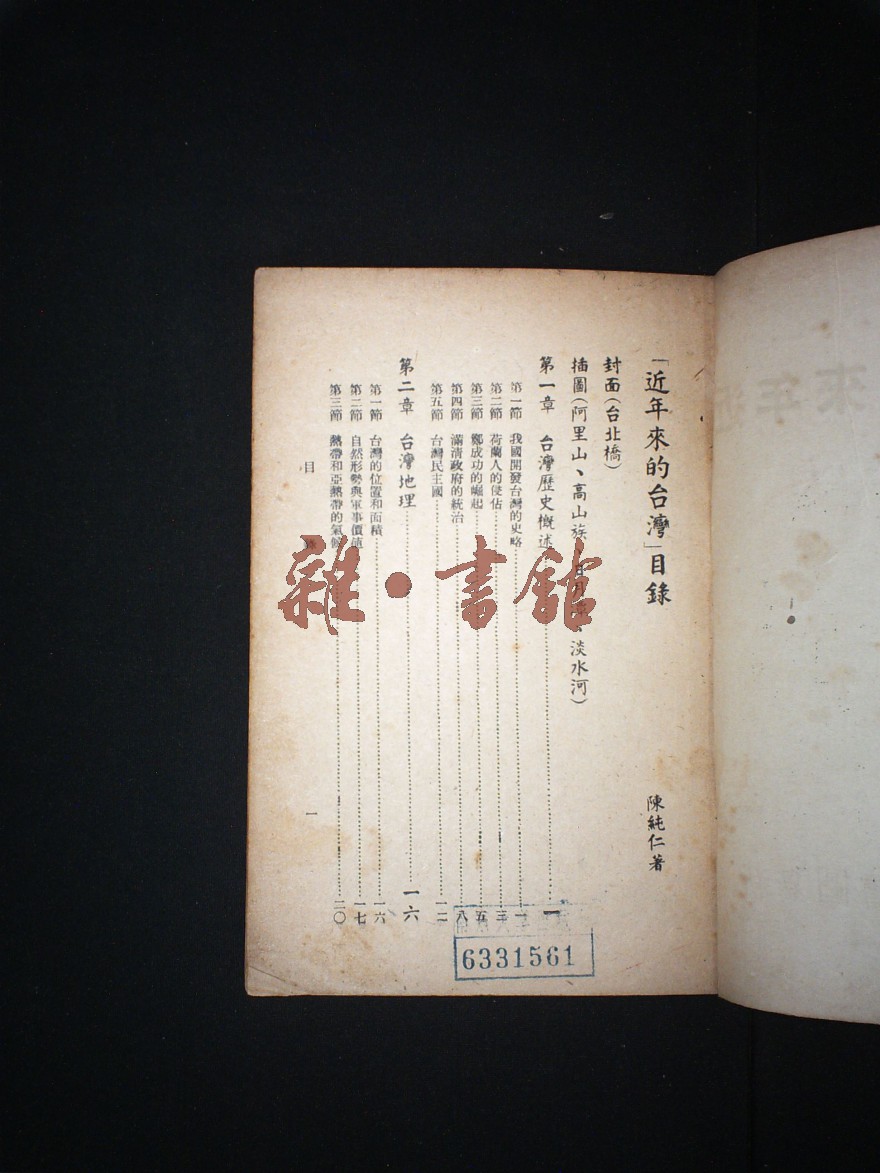 「近年來的台灣」目錄
陳純仁著
封面(台北橋)
插圖(阿里山、高山族、日月潭、淡水河)
第一章 台灣歷史概述 一
第一節 我國開發台灣的史略 一
第二節 荷蘭人的侵佔 三
第三節 鄭成功的崛起 五
第四節 滿清政府的統治 八
第五節 台灣民主國 一二
第二章 台灣地理 一六
第一節 台灣的位置和面積 一六
第二節 自然形勢與軍事價值 一七
第三節 熱帶和亞熱帶的氣候 二〇
目 錄
一
6331561
雜·書館